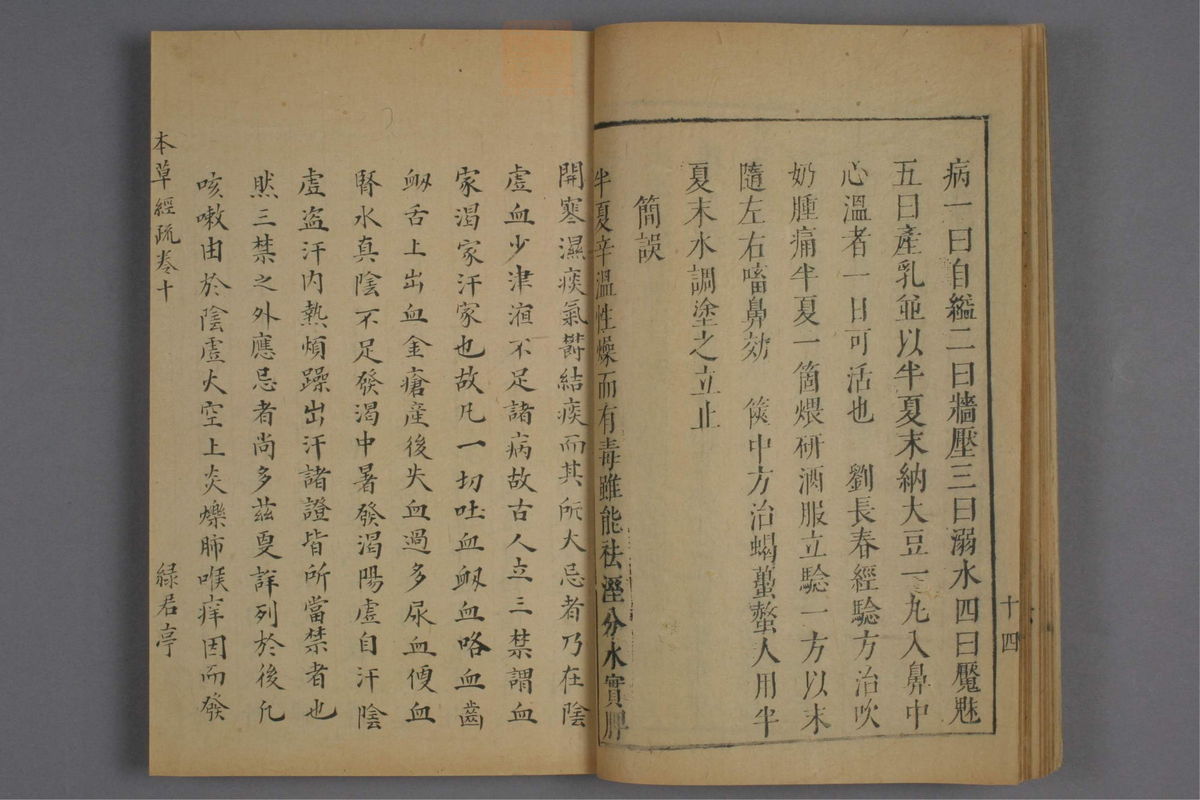 病一曰自縊二曰牆壓三曰溺水四曰魘魅
五曰產乳並以半夏末納大豆一丸入鼻中
心溫者一日可活也　劉長春經驗方治吹
奶腫痛半夏一箇煨研酒服立驗一方以末
隨左右㗜鼻効　篋中方治蝎蠆螫人用半
夏末水調塗之立止
簡誤
半夏辛溫性燥而有毒雖能祛溼分水實脾
十四
開寒濕痰氣欝結痰而其所大忌者乃在陰
虛血少津液不足諸病故古人立三禁謂血
家渴家汗家也故凡一切吐血衂血咯血齒
衂舌上出血金瘡產後失血過多尿血便血
腎水真陰不足發渴中暑發渴陽虛自汗陰
虛盜汗內熱煩躁出汗諸證皆所當禁者也
然三禁之外應忌者尚多茲更詳列於後凡
咳嗽由於陰虛火空上炎爍肺喉痒因而發
本草經疏卷十　綠君亭